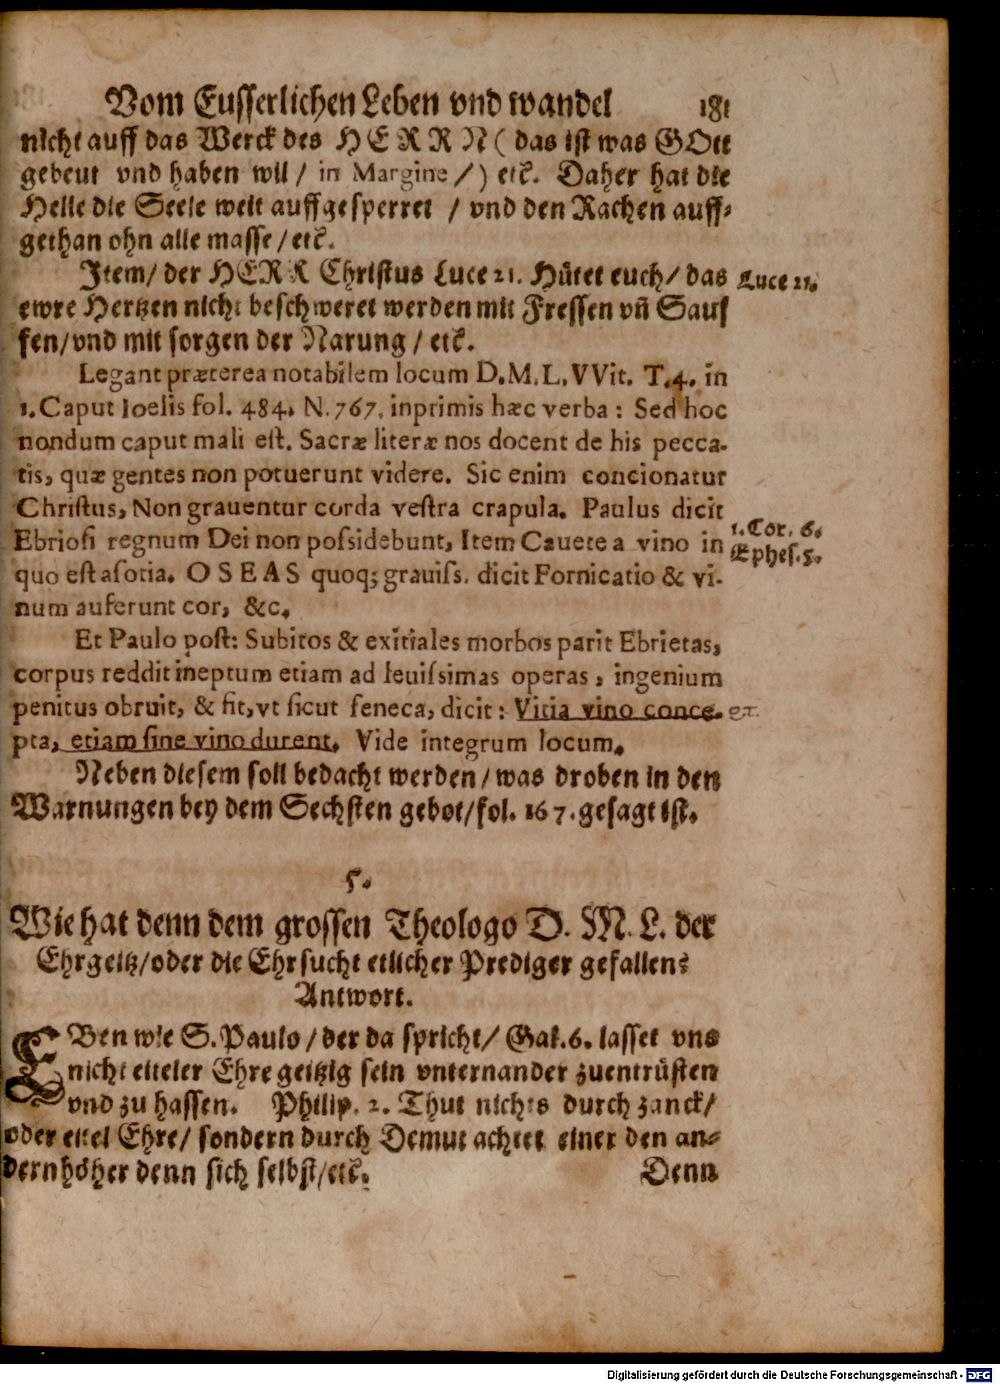 Vom Eusserlichen Leben vnd wandel 181
nicht auff das Werck des HERRN ( das ist was GOtt
gebeut vnd haben wil / in Margine /) etc. Daher hat die
Helle die Seele weit auffgesperret / vnd den Rachen auff-
gethan ohn alle masse / etc.
Item / der HERR Christus Luce 21. Hütet euch / das Luce 21.
ewre Hertzen nicht beschweret werden mit Fressen vñ Sauf
fen / vnd mit sorgen der Narung / etc.
Legant præterea notabilem locum D.M.L. VVit. T.4. in
1. Caput Ioelis fol. 484. N. 767. inprimis hæc verba : Sed hoc
nondum caput mali est. Sacræ literæ nos docent de his pecca-
tis, quæ gentes non potuerunt videre. Sic enim concionatur
Christus, Non grauentur corda vestra crapula. Paulus dicit
1. Cor. 6.
Ebriosi regnum Dei non possidebunt, Item Cauete a vino in
Ephes. 5.
quo est asotia. OSEAS quoq; grauiss. dicit Fornicatio & vi-
num auferunt cor, &c.
Et Paulo post: Subitos & exitiales morbos parit Ebrietas,
corpus reddit ineptum etiam ad leuissimas operas, ingenium
penitus obruit, & fit, vt sicut seneca, dicit: Vitia vino conce-
pta, etiam sine vino durent. Vide integrum locum.
Neben diesem soll bedacht werden / was droben in den
Warnungen bey dem Sechsten gebot / fol. 167. gesagt ist.
5.
Wie hat denn dem grossen Theologo D. M. L. der
Ehrgeitz / oder die Ehrsucht etlicher Prediger gefallen?
Antwort.
EBen wie S. Paulo / der da spricht / Gal. 6. lasset vns
nicht eiteler Ehre geitzig sein vnternander zuentrüsten
vnd zu hassen. Philip. 2. Thut nichts durch zanck /
oder eitel Ehre / sondern durch Demut achtet einer den an-
dern höher denn sich selbst / etc. Denn
Digitalisierung gefördert durch die Deutsche Forschungsgemeinschaft - DFG